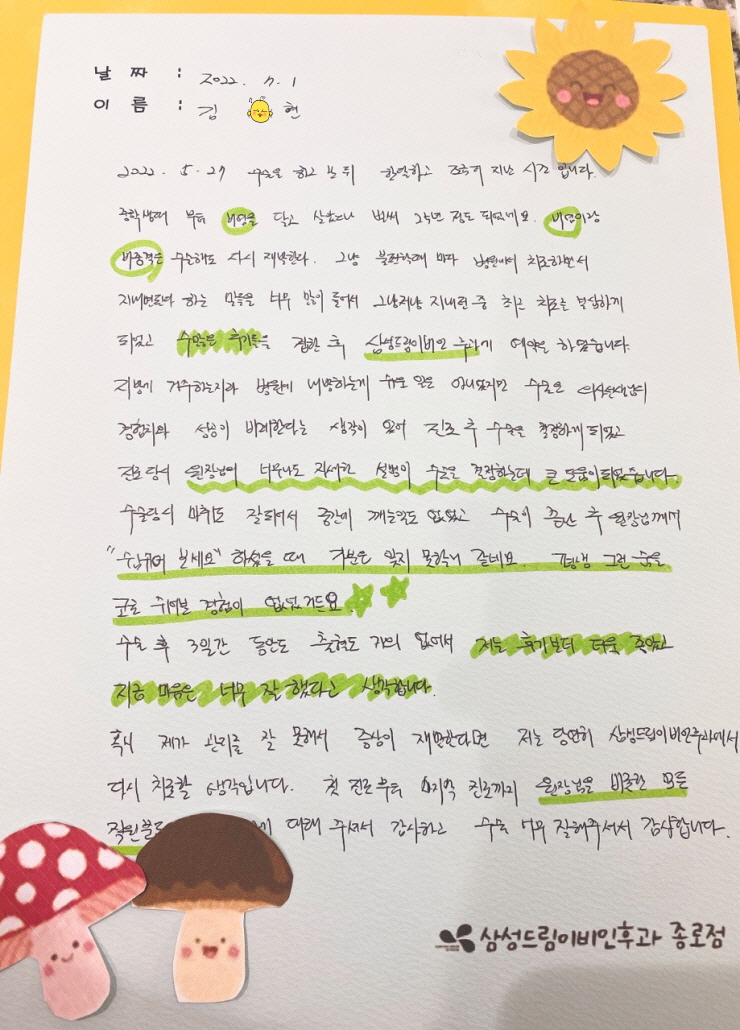 날 짜 : 2022. 7. 1
이 름 : 김 현
2022. 5. 27 수술을 하고 난 뒤 한달하고 조금더 지난 시간 입니다.
중학생때 부터 비염을 달고 살았으니 벌써 25년 정도 되었네요. 비염이랑
비중격은 수술해도 다시 재발한다. 그냥 불편할때 마다 병원에서 치료하면서
지내면된다 하는 말들을 너무 많이 들어서 그냥저냥 지내던 중 최근 치료는 부실하게
되었고 수많은 후기들을 접한 후 삼성드림이비인후과에 예약을 하였습니다.
지방에 거주하는지라 병원에 내방하는게 쉬운 일은 아니였지만 수술은 의사선생님의
경험치와 성공이 비례한다는 생각이 있어 진료 후 수술을 결정하게 되었고
진료 당시 원장님의 너무나도 자세한 설명이 수술을 결정하는데 큰 도움이 되었습니다.
수술당시 마취도 잘되어서 중간에 깨는일도 없었고 수술이 끝난 후 원장님께서
"숨쉬어 보세요" 하셨을 때 기분은 잊지 못할거 같네요. 평생 그런 숨을
코로 쉬어본 경험이 없었거든요.
수술 후 3일간 동안도 출혈도 거의 없어서 저는 후기보다 더욱 좋았고
지금 마음은 너무 잘 했다고 생각합니다.
혹시 제가 관리를 잘 못해서 증상이 재발한다면 저는 당연히 삼성드림이비인후과에서
다시 치료할 생각입니다. 첫 진료부터 마지막 진료까지 원장님을 비롯한 모든
직원분들 대해 주셔서 감사하고 수술 너무 잘해주셔서 감사합니다.
삼성드림이비인후과 종로점